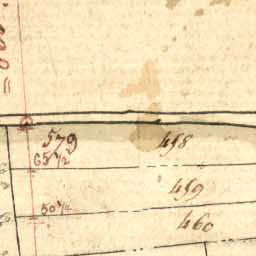 579 458
65 1/2
459
50 1/2
460